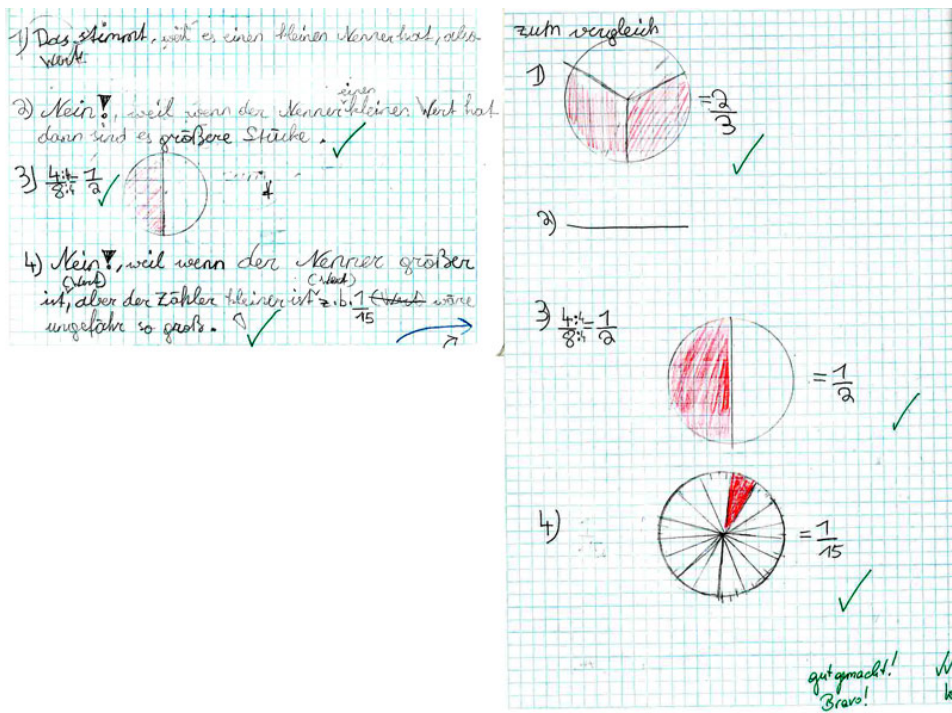 1) Das stimmt, weil es einen kleinen Nenner hat, also
Wert.
einen
2) Nein!, weil wenn der Nenner kleinen Wert hat
dann sind es größere Stücke.
3) 4:4/8:4 1/2
4) Nein!, weil wenn der Nenner größer
(Wert) (Wert)
ist, aber der Zähler kleiner ist z.b. 1/15 (Wert) wäre
ungefähr so groß.
zum vergleich
1) = 2/3
2)
3) 4:4/8:4 = 1/2
= 1/2
4) = 1/15
gut gemacht!
Bravo!